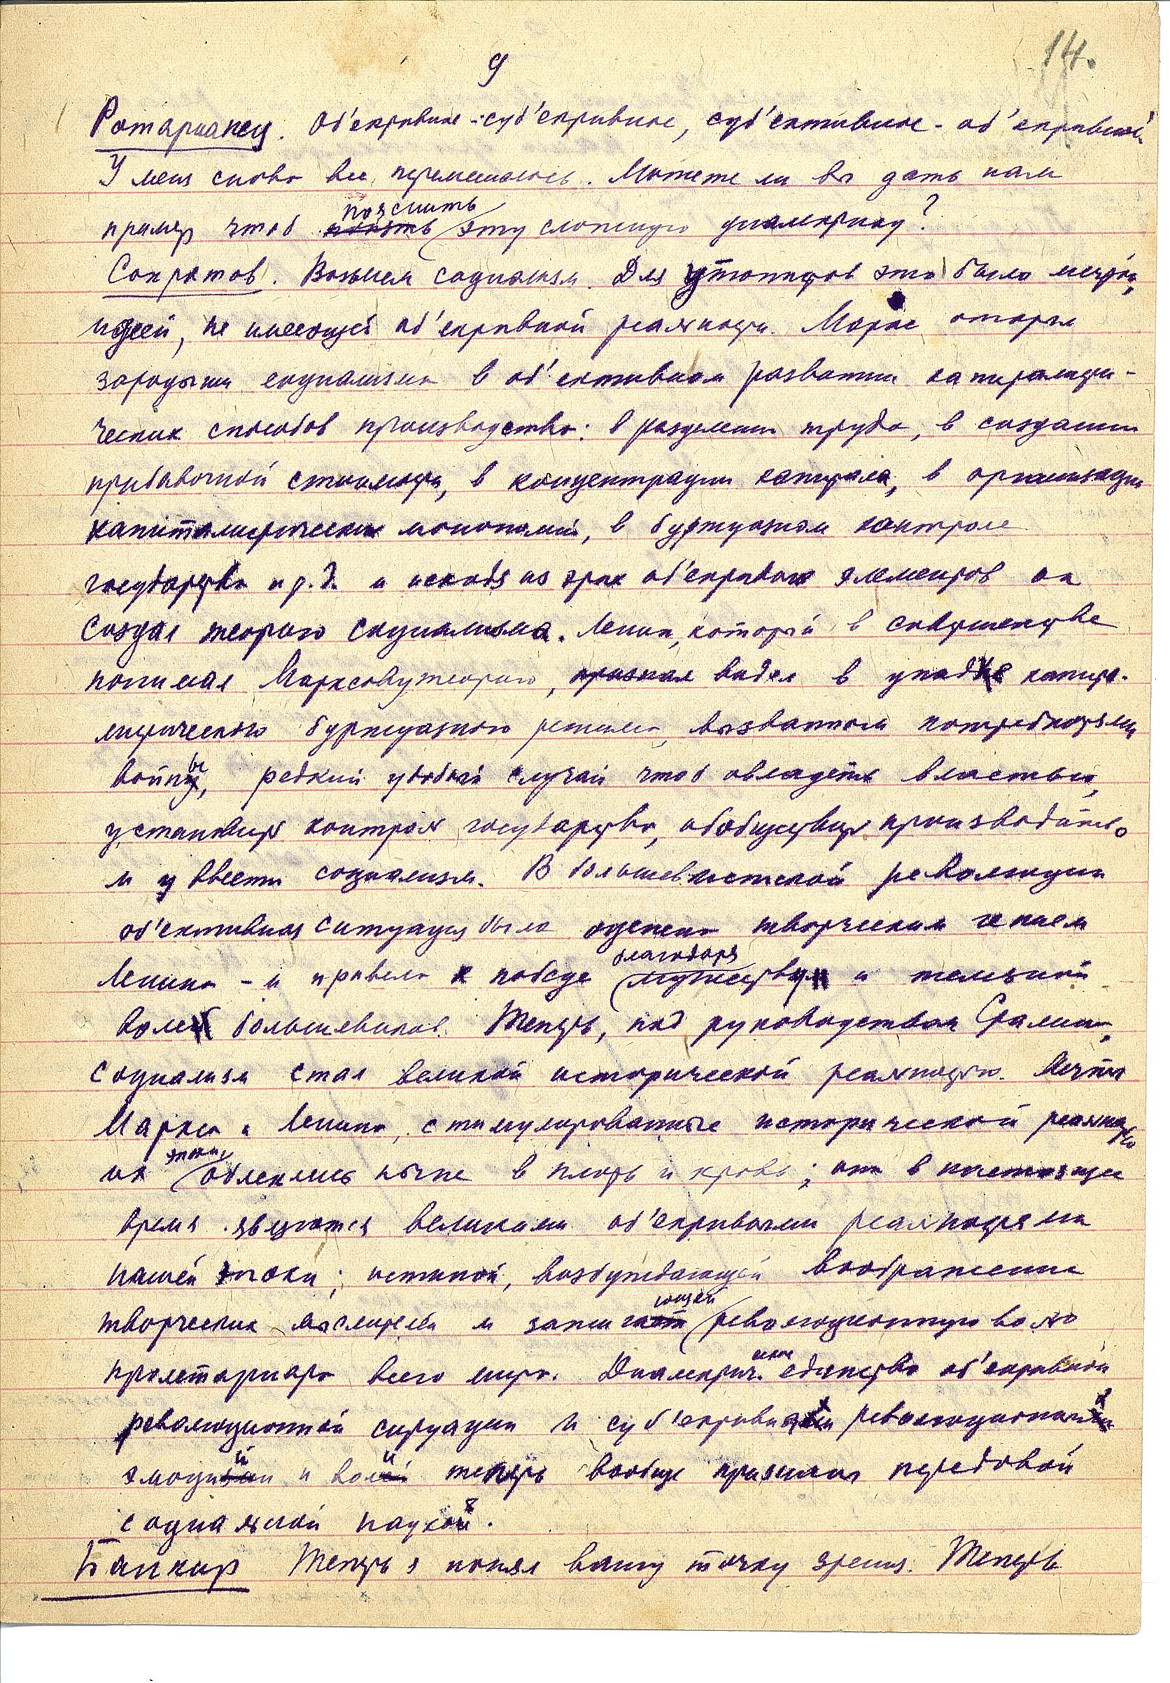 9
14.
Ротарианец. Об'ективное-суб'ективное, суб'ективное - об'ективное
У меня снова все перемешалось. Можете ли вы дать нам
пример чтоб пояснить эту сложную диалектику?
Сократов. Возьмем социализм. Для утопистов это было мечтой,
идеей, не имеющей об'ективной реальности. Маркс открыл
зародыши социализма в об'ективном развитии капиталисти-
ческих способов производства: в разделении труда, в создании
прибавочной стоимости, в концентрации капитала, в организации
капиталистических монополий, в буржуазном контроле
государства и т.д. и исходя из этих об'ективных элементов он
создал теорию социализма. Ленин, который в совершенстве
понимал Марксову теорию, признал видел в упадке капита-
листического буржуазного режима, вызванном потребностями
войны, редкий удобный случай чтоб овладеть властью,
установить контроль государства, обобществить производство
и ввести социализм. В большевистской революции
об'ективная ситуация была оценена творческим гением
Ленина - и привела к победе благодаря мужеству и железной
воле большевиков. Теперь, под руководством Сталина,
социализм стал великой исторической реальностью. Мечты
Маркса и Ленина, стимулированные исторической реальностью
их эпохи, облеклись ныне в плоть и кровь; они в настоящее
время являются великими об'ективными реальностями
нашей эпохи; истиной, возбуждающей воображение
творческих мыслителей и зажигающей революционную волю
пролетариата всего мира. Диалектическое единство об'ективной
революционной ситуации и суб'ективных революционных
эмоций и воли теперь вообще признано передовой
социальной наукой.
Банкир Теперь я понял вашу точку зрения. Теперь